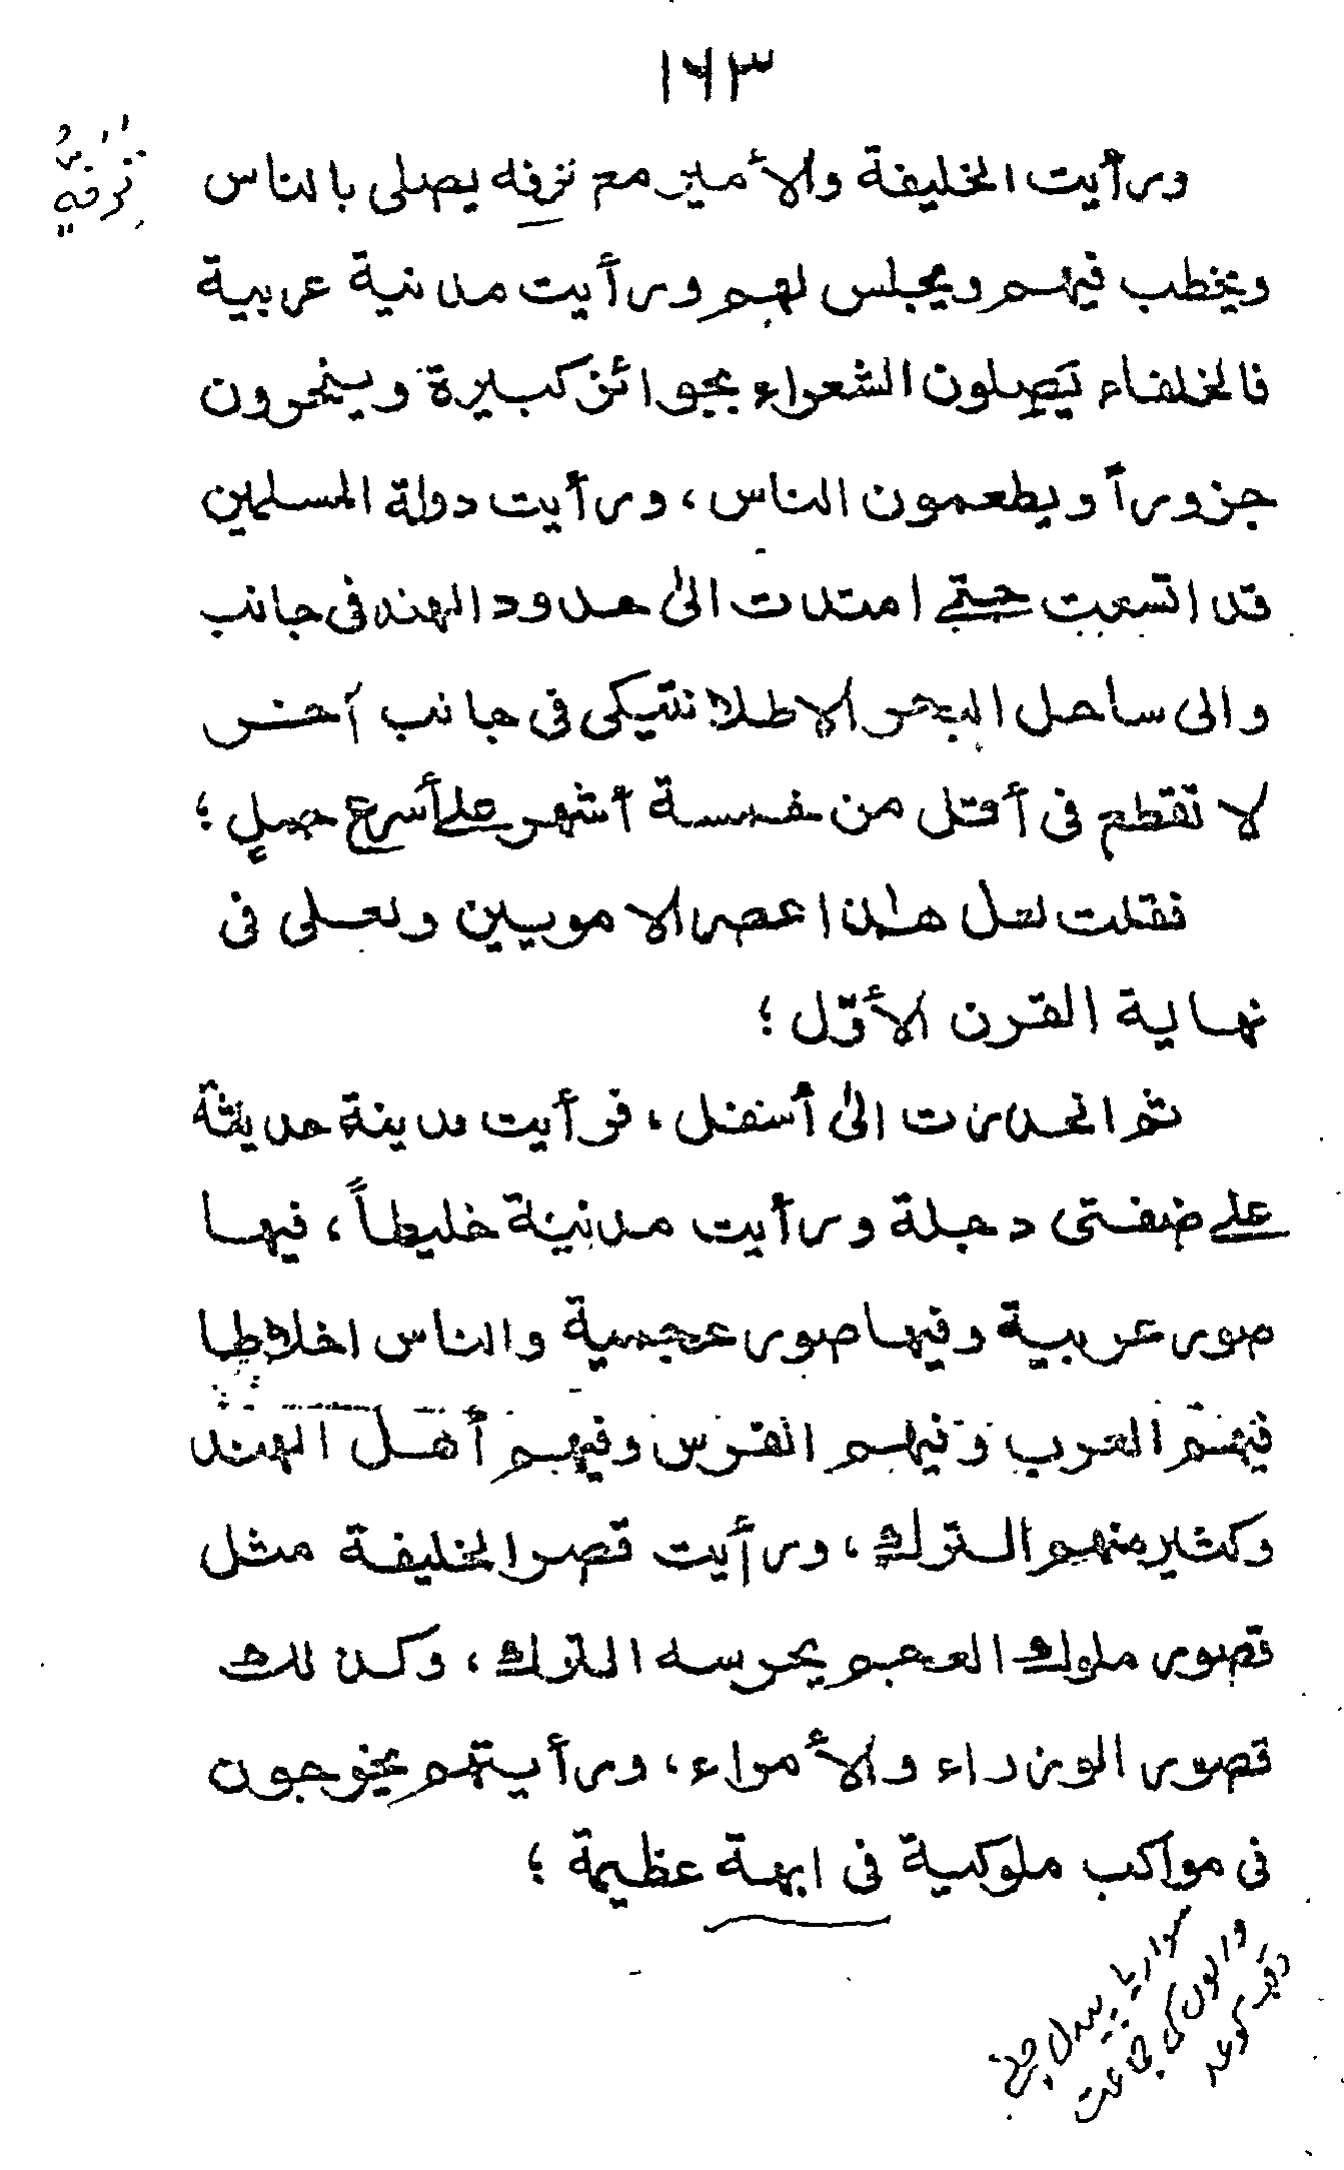 ١٦٣
ورأيت الخليفة والأمير مع ترفه يصلى بالناس
ويخطب فيهم ويجلس لهم ورأيت مدنية عربية
فالخلفاء يَصِلون الشعراء بجوائز كبيرة وينحرون
جزوراً ويطعمون الناس، ورأيت دولة المسلمين
قد اتسعت حتى امتدت الىٰ حدود الهند فى جانب
والى ساحل البحر الاطلانتيكى فى جانب آخر
لا تقطع فى أقل من خمسة أشهر على أسرع جملٍ؛
فقلت لعل هٰذا عصر الامويين ولعلى فى
نهاية القرن الأوّل؛
ثم انحدرت الىٰ أسفل، فرأيت مدينة حديثة
على ضفتى دجلة ورأيت مدنيّة خليطاً، فيها
صور عربية وفيها صور عجمية والناس اخلاطا
فيهم العرب وفيهم الفرس وفيهم أهل الهند
وكثير منهم الترك، ورأيت قصر الخليفة مثل
قصور ملوك العجم يحرسه الترك، وكذلك
قصور الوزراء والأمراء، ورأيتهم يخرجون
فى مواكب ملوكية فى ابهة عظيمة؛
سوار یا پیدل چلنے
والوں کی جماعت